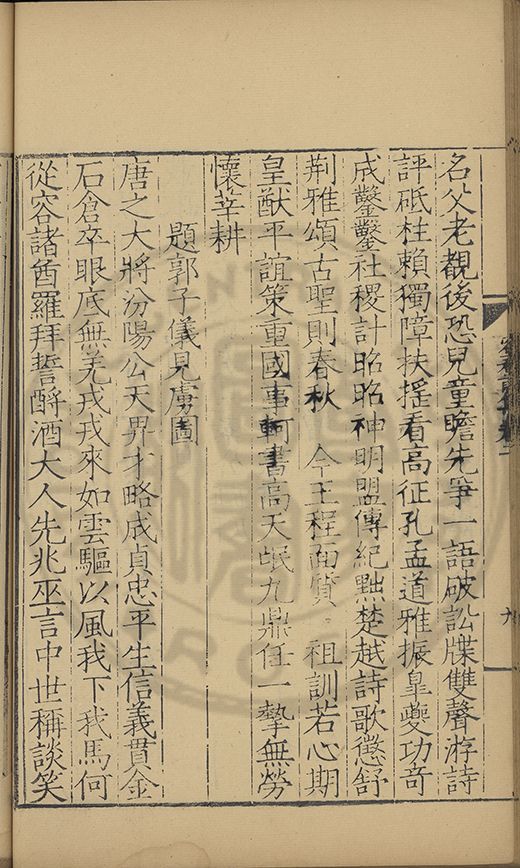 名父老覩後恐兒童瞻先爭一語破訟牒雙聲游詩
評砥柱賴獨障扶搖看高征孔孟道雅振臯夔功奇
成鑿鑿社稷計昭昭神明盟傳紀黜楚越詩歌懲舒
荆雅頌古聖則春秋 今王程面質 祖訓若心期
皇猷平誼策重國事軻書高天氓九鼎任一摯無勞
懷莘耕
題郭子儀見虜圖
唐之大將汾陽公天畀才略成貞忠平生信義貫金
石倉卒眼底無羌戎戎來如雲驅以風我下我馬何
從容諸酋羅拜誓酹酒大人先兆巫言中世稱談笑
九